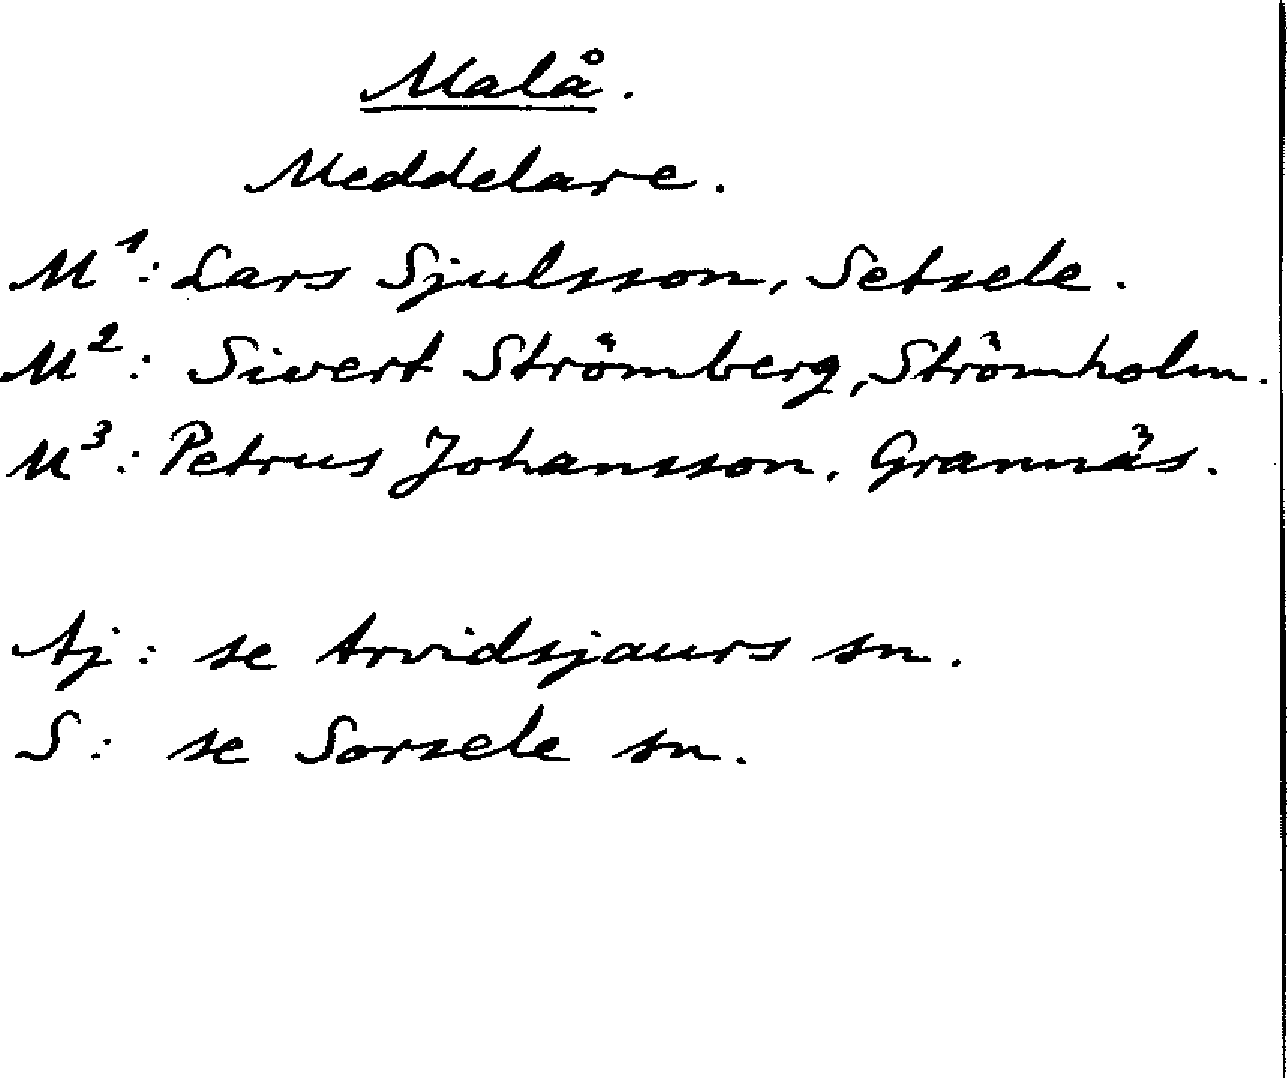 Malå.
Meddelare.
M¹: Lars Sjulsson, Setsele.
M²: Sivert Strömberg, Strömholm.
M³: Petrus Johansson, Grannäs.
Aj: se Arvidsjaurs sn.
S: se Sorsele sn.